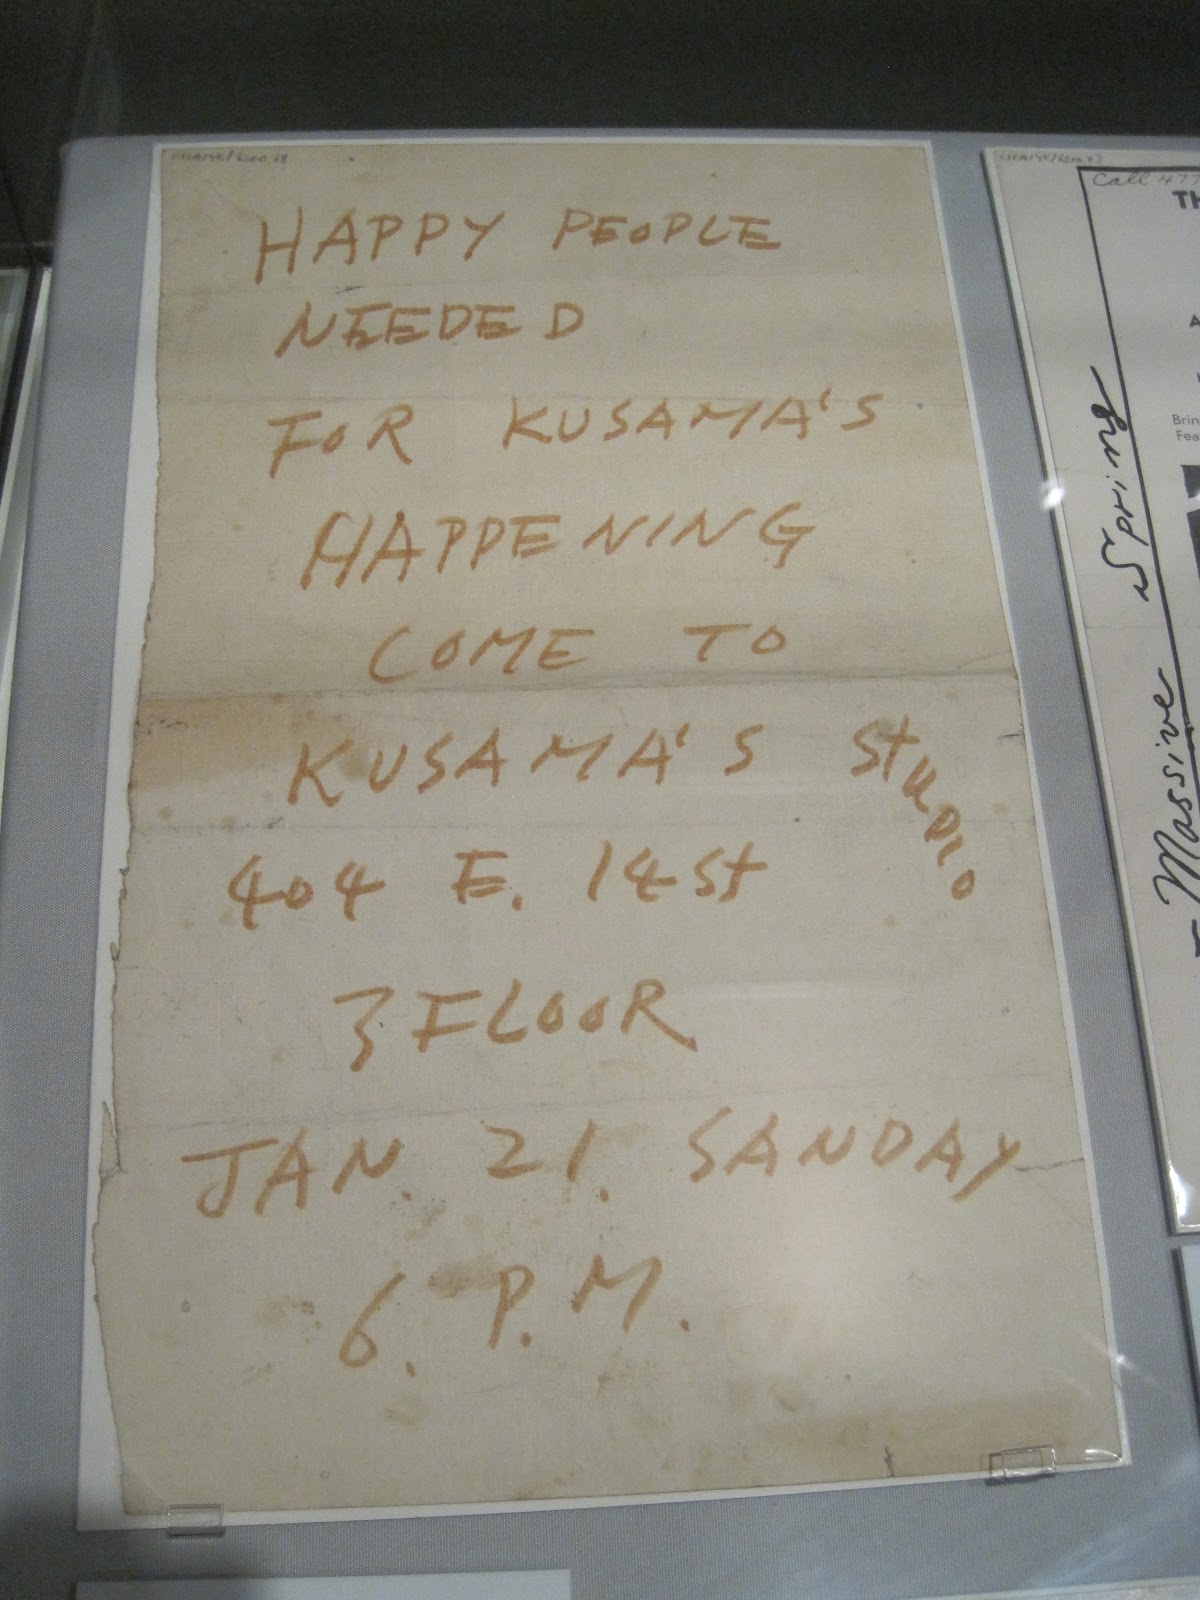 HAPPY PEOPLE
NEEDED
FOR KUSAMA'S
HAPPENING
COME TO
KUSAMA'S StUDIO
404 E. 14St
3 FLOOR
JAN. 21. SANDAY
6. P.M.
Call 477
TH
A
Brin
Fea
Massive Spring